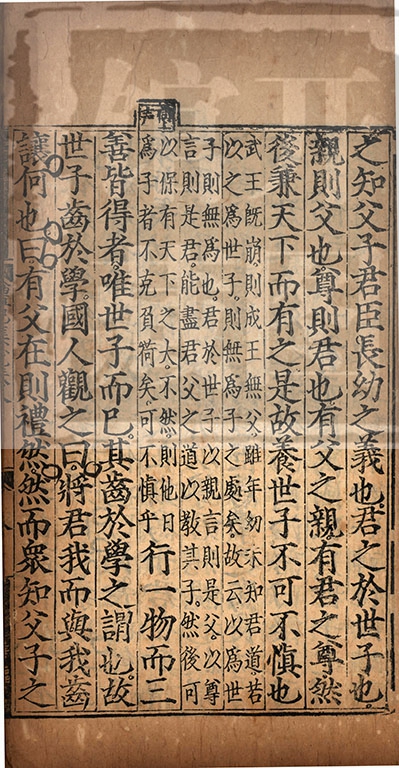 之知父子君臣長幼之義也。君之於世子也。
親則父也。尊則君也。有父之親。有君之尊。然
後兼天下而有之。是故養世子不可不慎也
武王既崩。則成王無父。雖年幼未知君道。若
以之爲世子。則無爲子之處矣。故云以爲世
子則無爲也。君於世子。以親言則是父。以尊
言則是君。能盡君父之道。以教其子。然後可
以保有天下之大。不然。則他日
爲子者不克負荷矣。可不慎乎
行一物而三
善皆得者。唯世子而已。其齒於學之謂也。故
世子齒於學。國人觀之曰。將君我而與我齒
讓何也。曰。有父在則禮然。然而衆知父子之